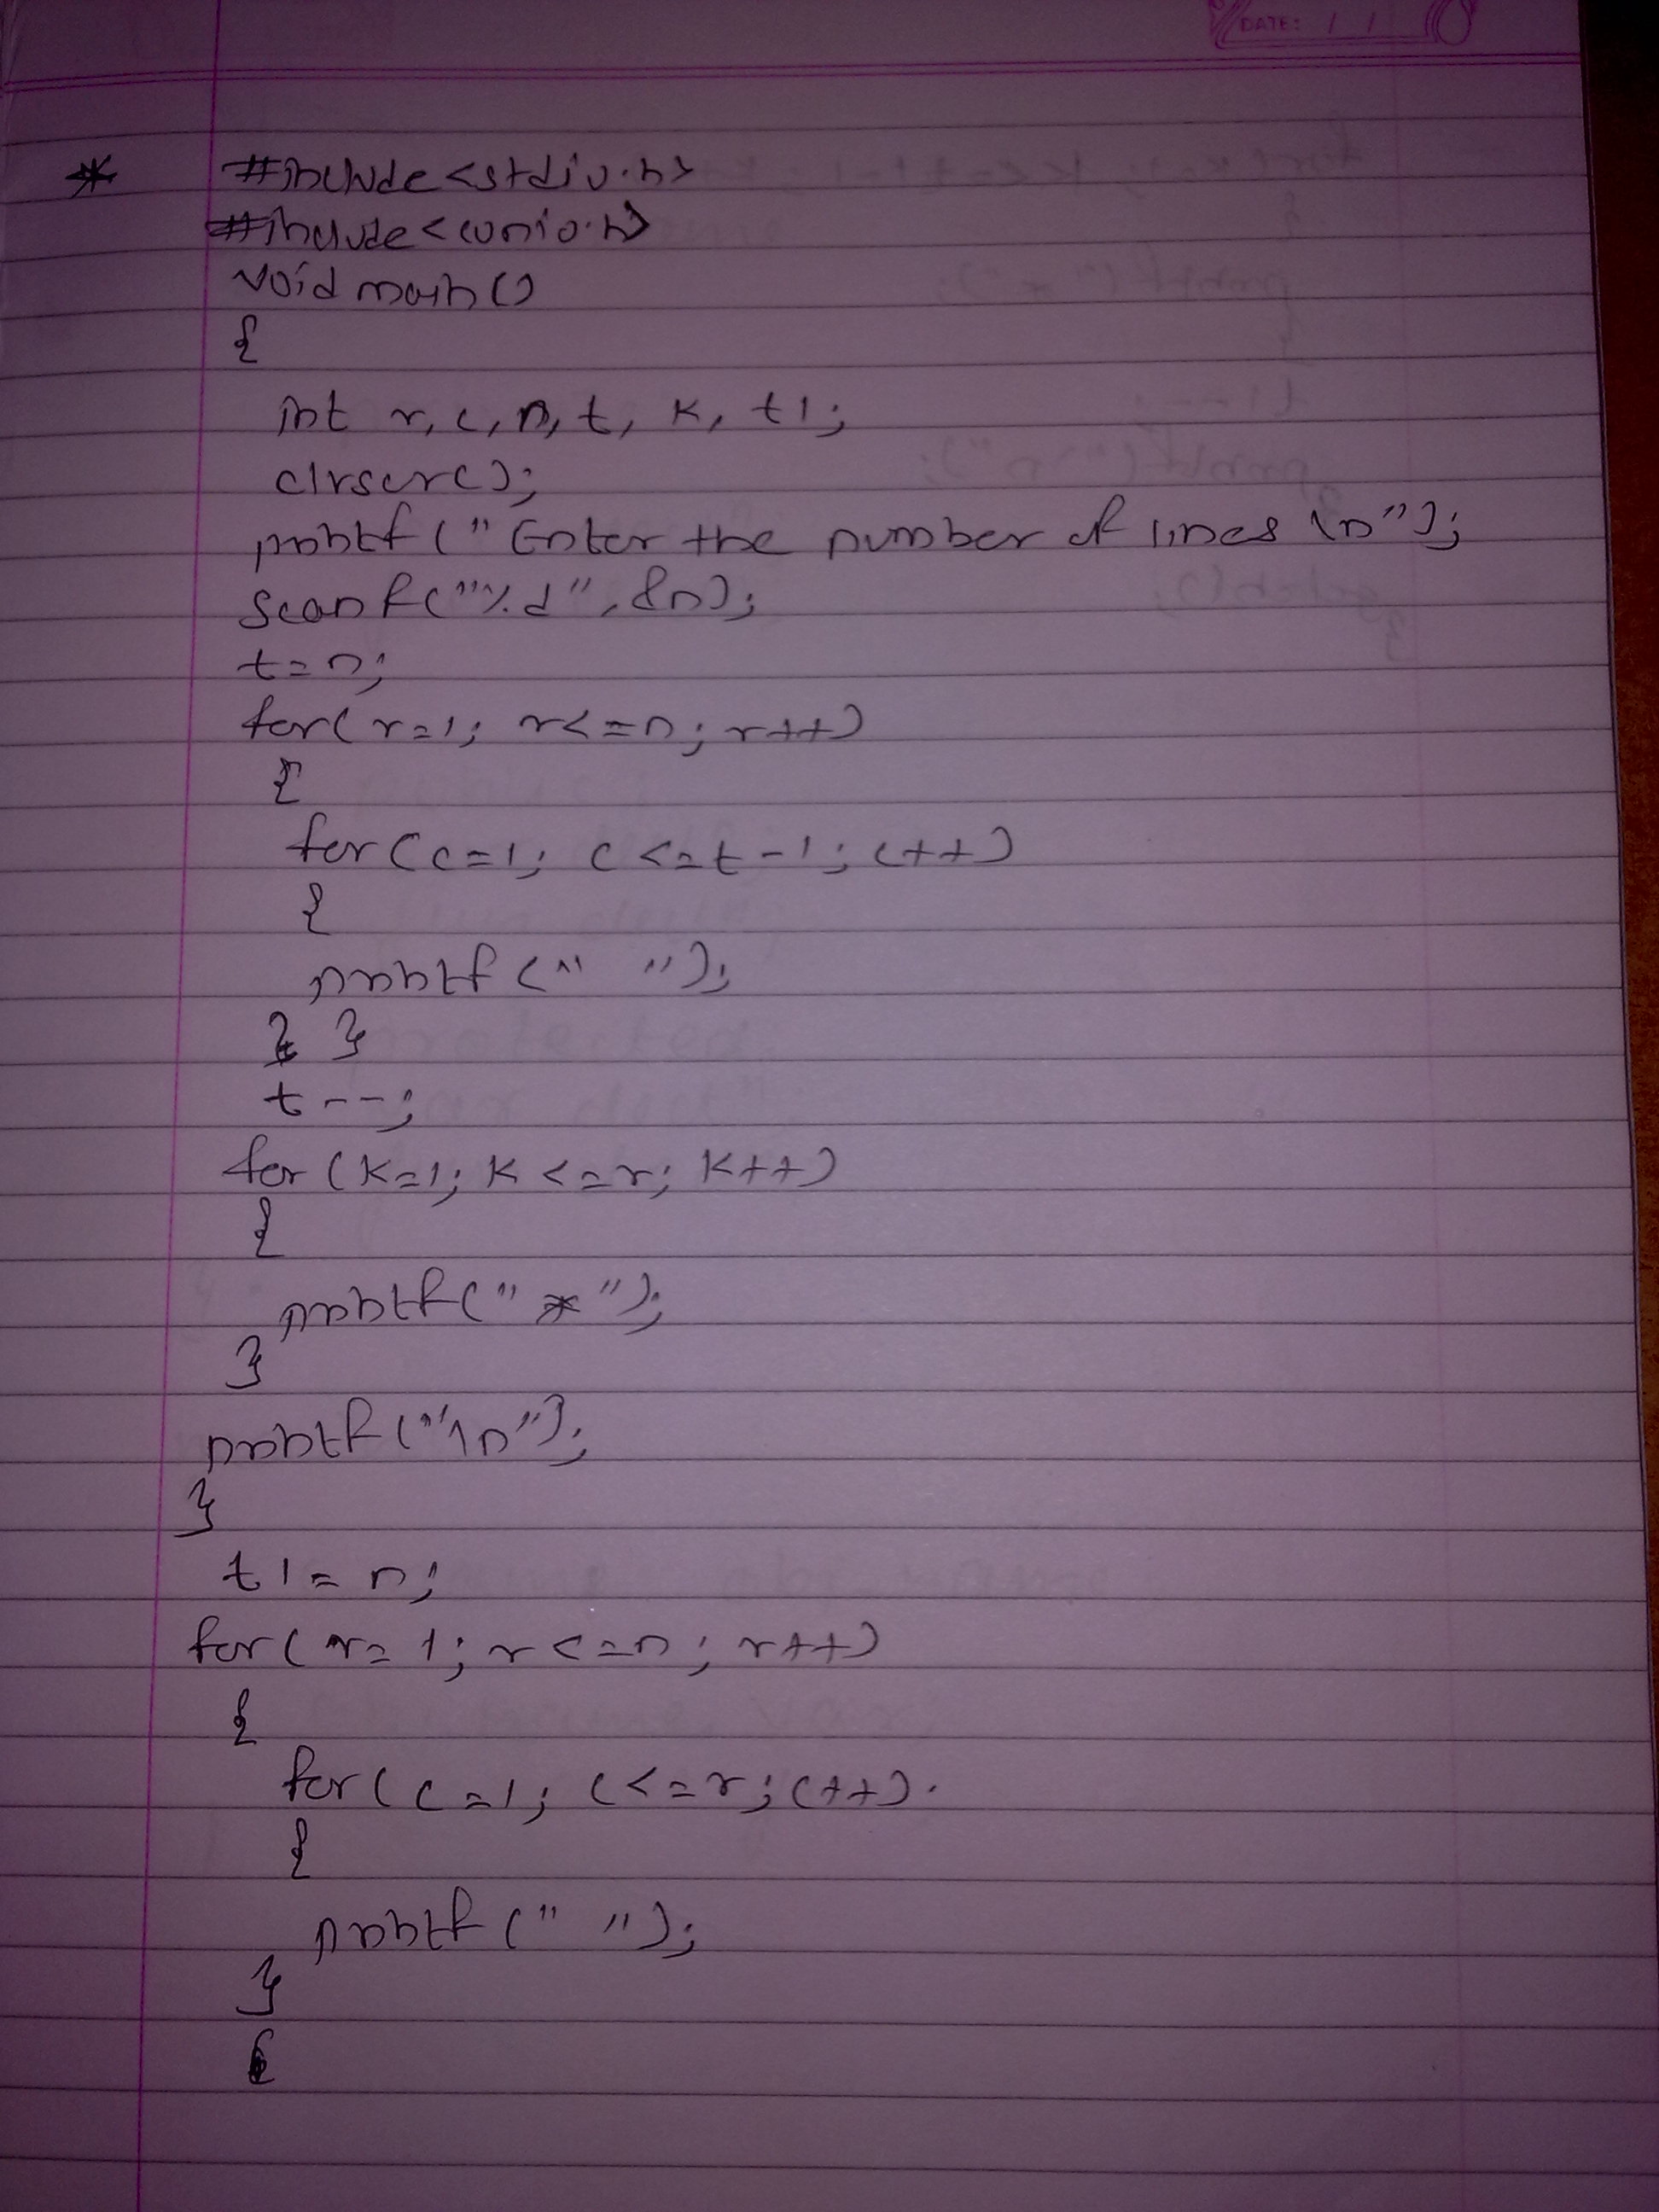 DATE: / /
* #include<stdio.h>
#include<conio.h>
void main()
{
int r, c, n, t, k, t1;
clrscr();
printf("Enter the number of lines \n");
scanf("%d",&n);
t=n;
for(r=1; r<=n; r++)
{
for(c=1; c<=t-1; c++)
{
printf(" ");
} }
t--;
for(k=1; k<=r; k++)
{
printf("*");
}
printf("\n");
}
t1=n;
for(r=1; r<=n; r++)
{
for(c=1; c<=r; c++).
{
printf(" ");
}